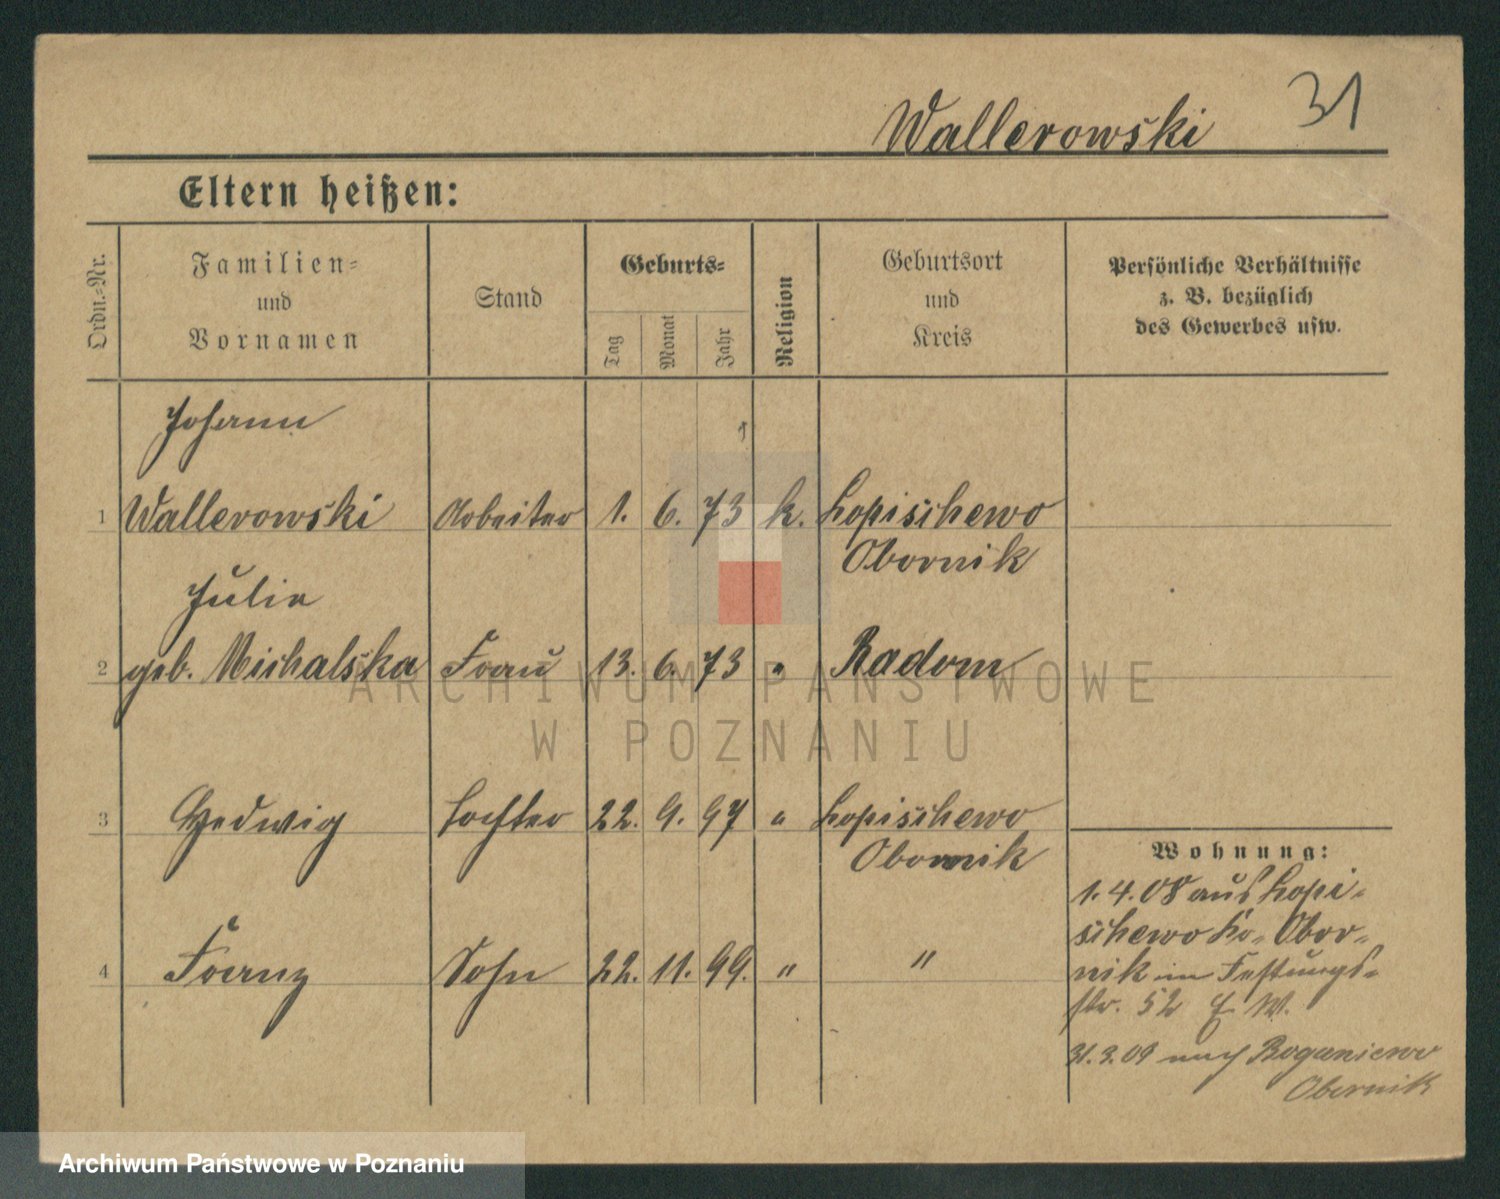 31
Wallerowski
Eltern heißen:
Ordn.-Nr.
Familien-
und
Vornamen
Stand
Geburts-
Tag
Monat
Jahr
Religion
Geburtsort
und
Kreis
Persönliche Verhältnisse
z. B. bezüglich
des Gewerbes usw.
Johann
1 Wallerowski Arbeiter 1. 6. 73 k. Lopischewo
Obornik
Julie
2 geb. Michalska Frau 13. 6. 73 " Radom
3 Hedwig Tochter 22. 9. 97 " Lopischewo
Obornik
4 Franz Sohn 22. 11. 99. " "
Wohnung:
1. 4. 08 aus Lopi-
schewo Kr. Obor-
nik in Festungs-
str. 52 E. W.
31. 3. 09 nach Boganiewo
Obornik
ARCHIWUM PAŃSTWOWE
W POZNANIU
Archiwum Państwowe w Poznaniu